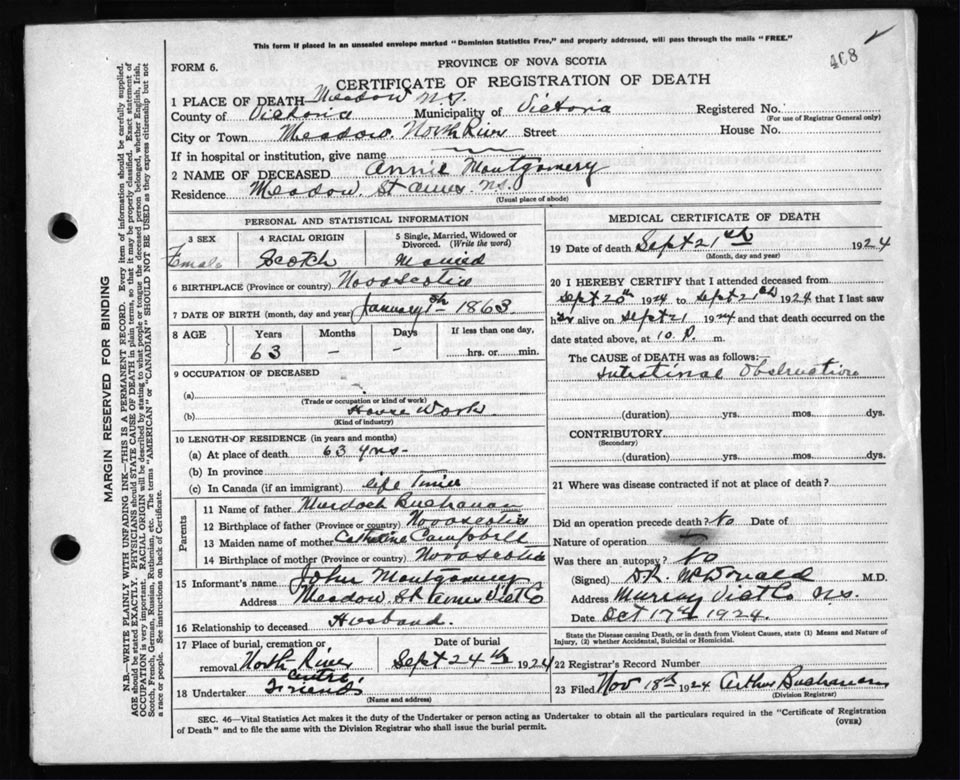 This form if placed in an unsealed envelope marked "Dominion Statistics Free," and properly addressed, will pass through the mails "FREE."
468
FORM 6.
PROVINCE OF NOVA SCOTIA
CERTIFICATE OF REGISTRATION OF DEATH
1 PLACE OF DEATH Meadow N.S.
County of Victoria Municipality of Victoria Registered No.
(For use of Registrar General only)
City or Town Meadow. North River Street House No.
If in hospital or institution, give name
2 NAME OF DECEASED Annie Montgomery
Residence Meadow. St Annes. N.S.
(Usual place of abode)
PERSONAL AND STATISTICAL INFORMATION
3 SEX 4 RACIAL ORIGIN 5 Single, Married, Widowed or Divorced. (Write the word)
Female Scotch Married
6 BIRTHPLACE (Province or country) Novascotia
7 DATE OF BIRTH (month, day and year) January 1863
8 AGE Years Months Days If less than one day,
63 – – hrs. or min.
9 OCCUPATION OF DECEASED
(a)
(Trade or occupation or kind of work)
(b) House Work
(Kind of industry)
10 LENGTH OF RESIDENCE (in years and months)
(a) At place of death 63 yrs-
(b) In province
(c) In Canada (if an immigrant) life Time
Parents
11 Name of father Murdoch Buchanan
12 Birthplace of father (Province or country) Novascotia
13 Maiden name of mother Catherine Campbell
14 Birthplace of mother (Province or country) Novascotia
15 Informant's name John Montgomery
Address Meadow. St Annes Vict Co
16 Relationship to deceased Husband.
17 Place of burial, cremation or removal North River Centre Date of burial Sept 24th 1924
18 Undertaker Friends
(Name and address)
MEDICAL CERTIFICATE OF DEATH
19 Date of death Sept 21st 1924
(Month, day and year)
20 I HEREBY CERTIFY that I attended deceased from
Sept 20th 1924 to Sept 21st 1924 that I last saw
her alive on Sept 21 1924 and that death occurred on the
date stated above, at 10. P. m.
The CAUSE of DEATH was as follows:
Intestinal Obstruction
(duration) yrs. mos. dys.
CONTRIBUTORY
(Secondary)
(duration) yrs. mos. dys.
21 Where was disease contracted if not at place of death?
Did an operation precede death? No Date of
Nature of operation
Was there an autopsy? No
(Signed) D.R. McDonald M.D.
Address Murray Vict Co N.S.
Date Oct 17th 1924.
State the Disease causing Death, or in death from Violent Causes, state (1) Means and Nature of
Injury, (2) whether Accidental, Suicidal or Homicidal.
22 Registrar's Record Number
23 Filed Nov 18th 1924 Arthur Buchanan
(Division Registrar)
SEC. 46—Vital Statistics Act makes it the duty of the Undertaker or person acting as Undertaker to obtain all the particulars required in the "Certificate of Registration
of Death" and to file the same with the Division Registrar who shall issue the burial permit.
(OVER)
MARGIN RESERVED FOR BINDING
N.B.—WRITE PLAINLY WITH UNFADING INK—THIS IS A PERMANENT RECORD. Every item of information should be carefully supplied.
AGE should be stated EXACTLY. PHYSICIANS should STATE CAUSE OF DEATH in plain terms, so that it may be properly classified. Exact statement of
OCCUPATION is very important. RACIAL ORIGIN will be described by stating to what people or tongue the deceased person belonged, whether English, Irish,
Scotch, French, German, Russian, Ruthenian, etc. The terms "AMERICAN" or "CANADIAN" SHOULD NOT BE USED as they express citizenship but not
a race or people. See instructions on back of Certificate.